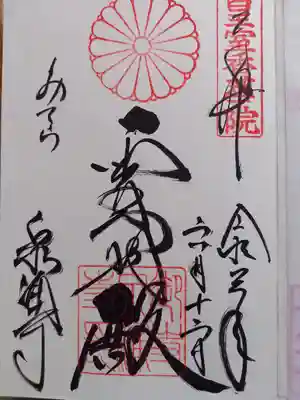 皇室香華院
奉拝
令和元年
六月十
霊明殿
みてら
泉涌寺